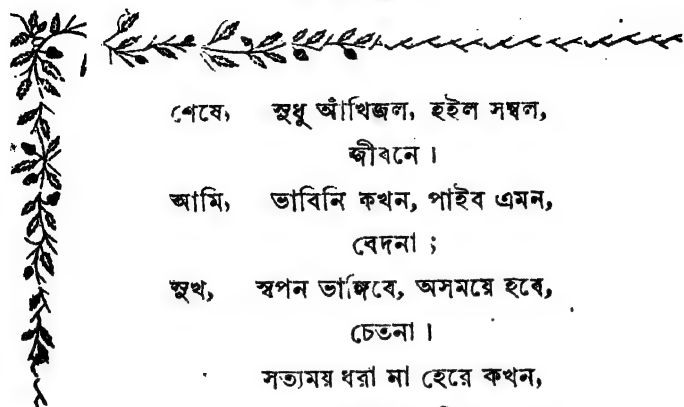 শেষে, সুধু আঁখিজল, হইল সম্বল,
জীবনে।
আমি, ভাবিনি কখন, পাইব এমন,
বেদনা;
সুখ, স্বপন ভাঙ্গিবে, অসময়ে হবে,
চেতনা।
সত্যময় ধরা না হেরে কখন,